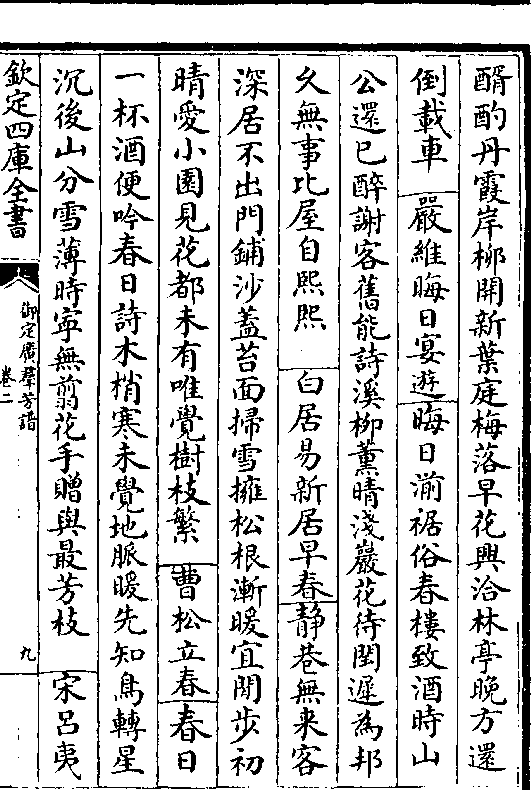 醑酌丹霞岸柳開新葉庭梅落早花興洽林亭晚方還
倒載車　嚴維晦日宴遊晦日湔裾俗春樓致酒時山
公還已醉謝客舊能詩溪柳薰晴淺巖花待閏遲為邦
久無事比屋自熙熙　白居易新居早春静巷無来客
深居不出門鋪沙蓋苔面掃雪擁松根漸暖宜閒步初
晴愛小園見花都未有唯覺樹枝繁　曹松立春春日
一杯酒便吟春日詩木梢寒未覺地脈暖先知鳥轉星
沉後山分雪薄時寧無翦花手贈與最芳枝　宋呂夷
欽定四庫全書
御定廣羣芳譜
卷二
九